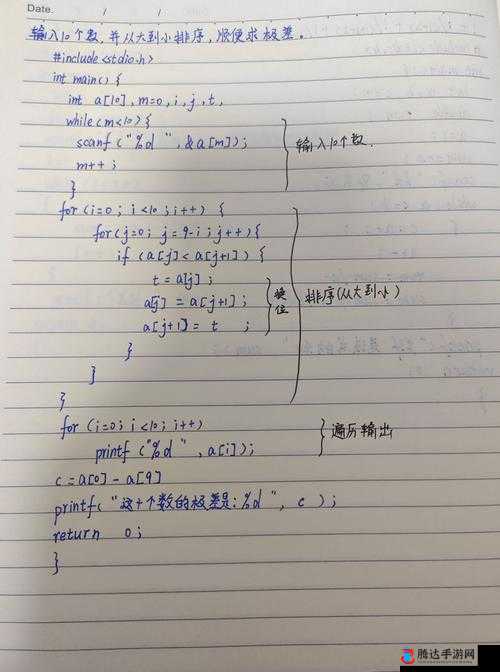 Date. / /
输入10个数,并从大到小排序,顺便求极差。
#include <stdio.h>
int main() {
int a[10], m=0, i, j, t,
while (m<10) {
scanf ("%d ", &a[m]);
m++ ;
}
输入10个数.
for (i=0 ; i<10 ; i++) {
for (j=0; j=9-i ; j++) {
if (a[j] < a[j+1]) {
t = a[j] ;
a[j] = a[j+1] ;
a[j+1] = t ;
}
}
}
换位
排序(从大到小)
for (i=0; i<10; i++)
printf ("%d ", a[i]);
遍历输出
c = a[0] - a[9]
printf( "这十个数的极差是:%d ", c );
return 0;
}
腾达手游网